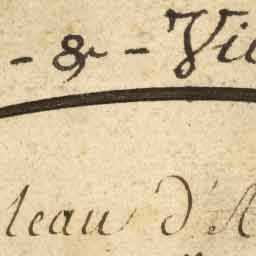 - & - Vi
leau d'A